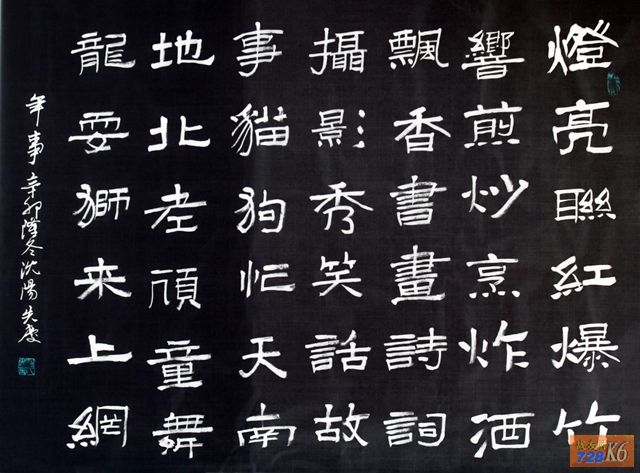 燈亮聯紅爆竹
響煎炒烹炸酒
飄香書畫詩詞
攝影秀笑話故
事貓狗忙天南
地北老頑童舞
龍耍獅来上網
年事 辛卯隆冬沈陽
战友网
728
K6